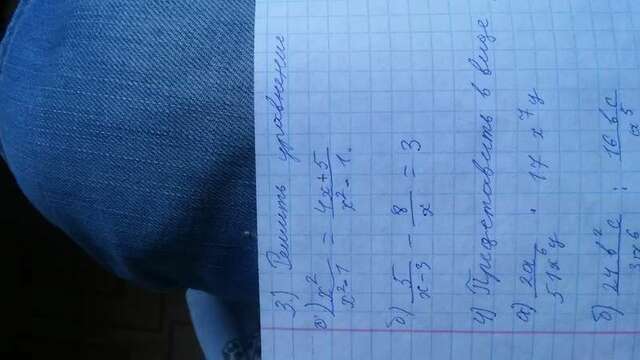 3.) Решить уравнение
а) x²/(x²-1) = (4x+5)/(x²-1.
б) 5/(x-3) - 8/x = 3
4) Представить в виде
а) 2a/(51x⁶y) · 17 x⁷y
б) 24 b²c/(3a⁶) : 16 b c/a⁵